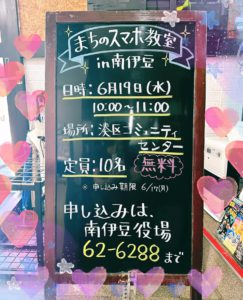 まちのスマホ教室
in南伊豆
日時：6月19日（水）
10:00〜11:00
場所：湊区コミュニティ
センター
定員：10名 無料
※申し込み期限 6/17（月）
申し込みは、
南伊豆役場
62-6288まで